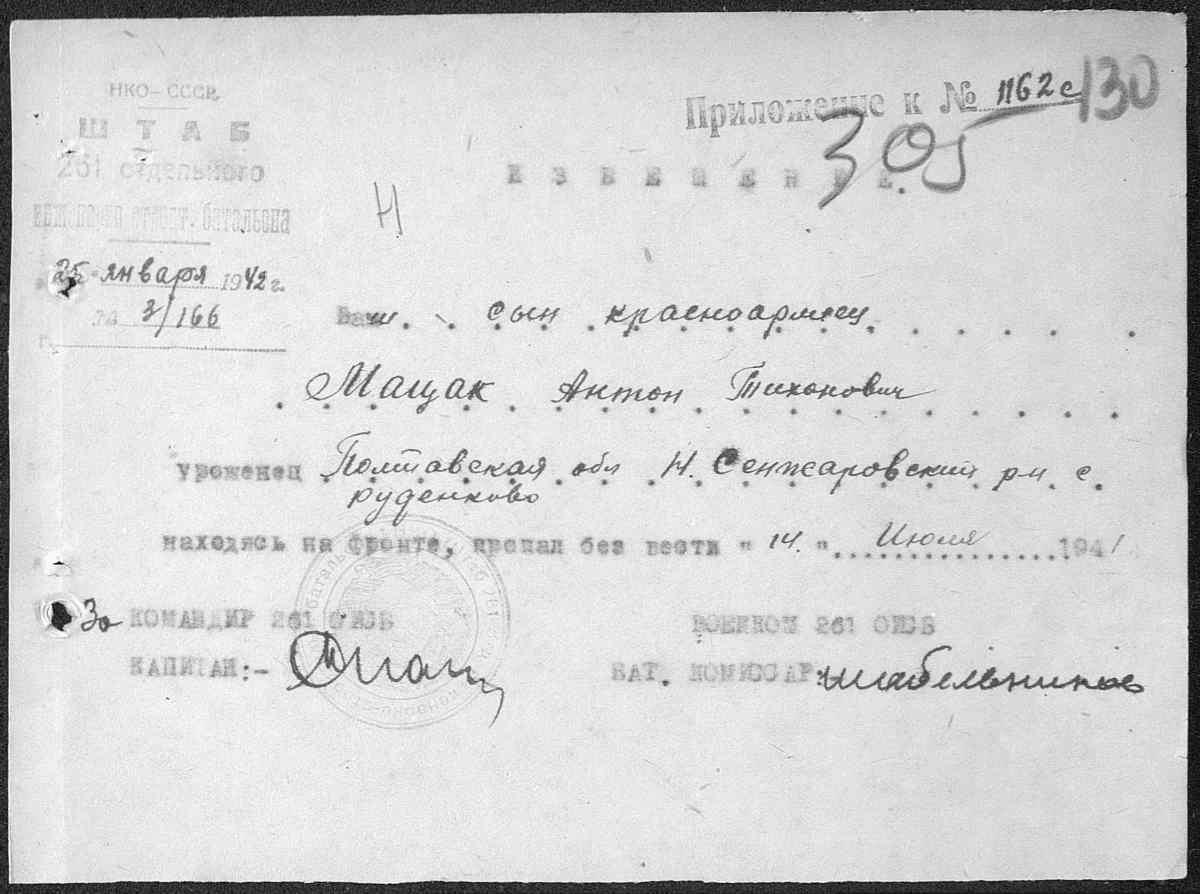 НКО - СССР.
ШТАБ
261 отдельного
батальона
25 января 1942 г.
№ 3/166
Приложение к № 1162с
130
305
ИЗВЕЩЕНИЕ.
Н
Ваш сын красноармеец
Мащак Антон Тихонович
уроженец Полтавская обл Н. Сенжаровский р-н с.
руденково
находясь на фронте, пропал без вести "14." Июля 1941
За КОМАНДИР 261 ОИСБ
ВОЕНКОМ 261 ОИСБ
КАПИТАН:-
БАТ. КОМИССАР: Шабельников